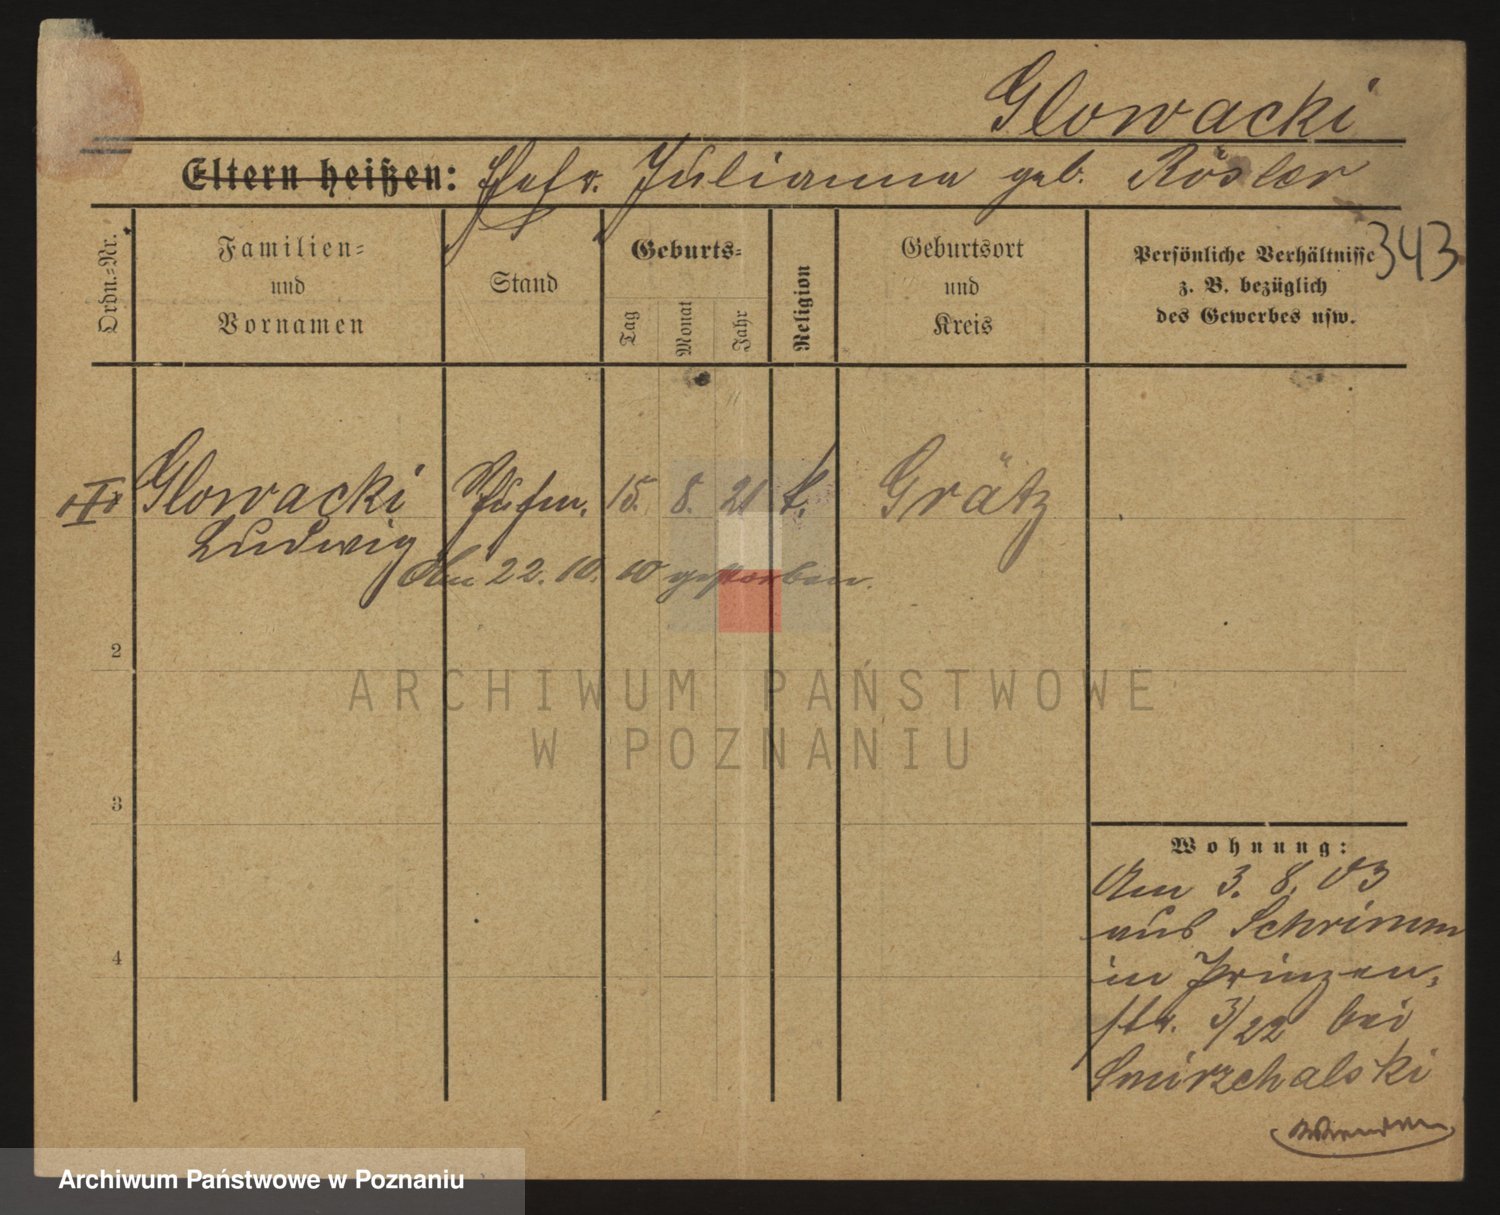 Glowacki
Eltern heißen: Ehefr. Julianna geb. Rösler
343
Ordn.-Nr.
Familien-
und
Vornamen
Stand
Geburts-
Tag
Monat
Jahr
Religion
Geburtsort
und
Kreis
Persönliche Verhältnisse
z. B. bezüglich
des Gewerbes usw.
Glowacki 15. 8. 21 k. Grätz
Ludwig
Am 22. 10. 10 gestorben.
2
3
4
Wohnung:
Am 3. 8. 03
aus Schrimm
in Prinzen-
str. 3/22 bei
Smirzchalski
Wenden
ARCHIWUM PAŃSTWOWE
W POZNANIU
Archiwum Państwowe w Poznaniu